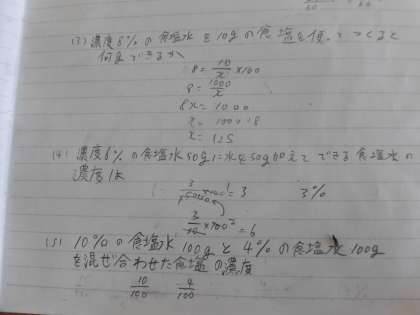 (3) 濃度8%の食塩水を10gの食塩を使ってつくると
何gできるか
8 = 10/x × 100
8 = 1000/x
8x = 1000
x = 1000÷8
x = 125
(4) 濃度6%の食塩水50gに水を50g加えてできる食塩水の
濃度は
= 3 3%
3/50 × 100 = 6
(5) 10%の食塩水100gと4%の食塩水100g
を混ぜ合わせた食塩の濃度
10/100 4/100